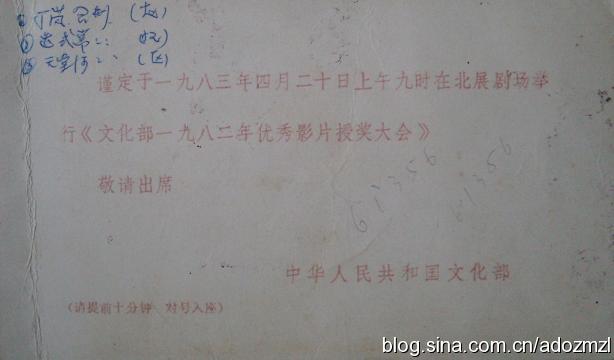 谨定于一九八三年四月二十日上午九时在北展剧场举
行《文化部一九八二年优秀影片授奖大会》
敬请出席
61356
61356
中华人民共和国文化部
(请提前十分钟 对号入座)
blog.sina.com.cn/adozmzl